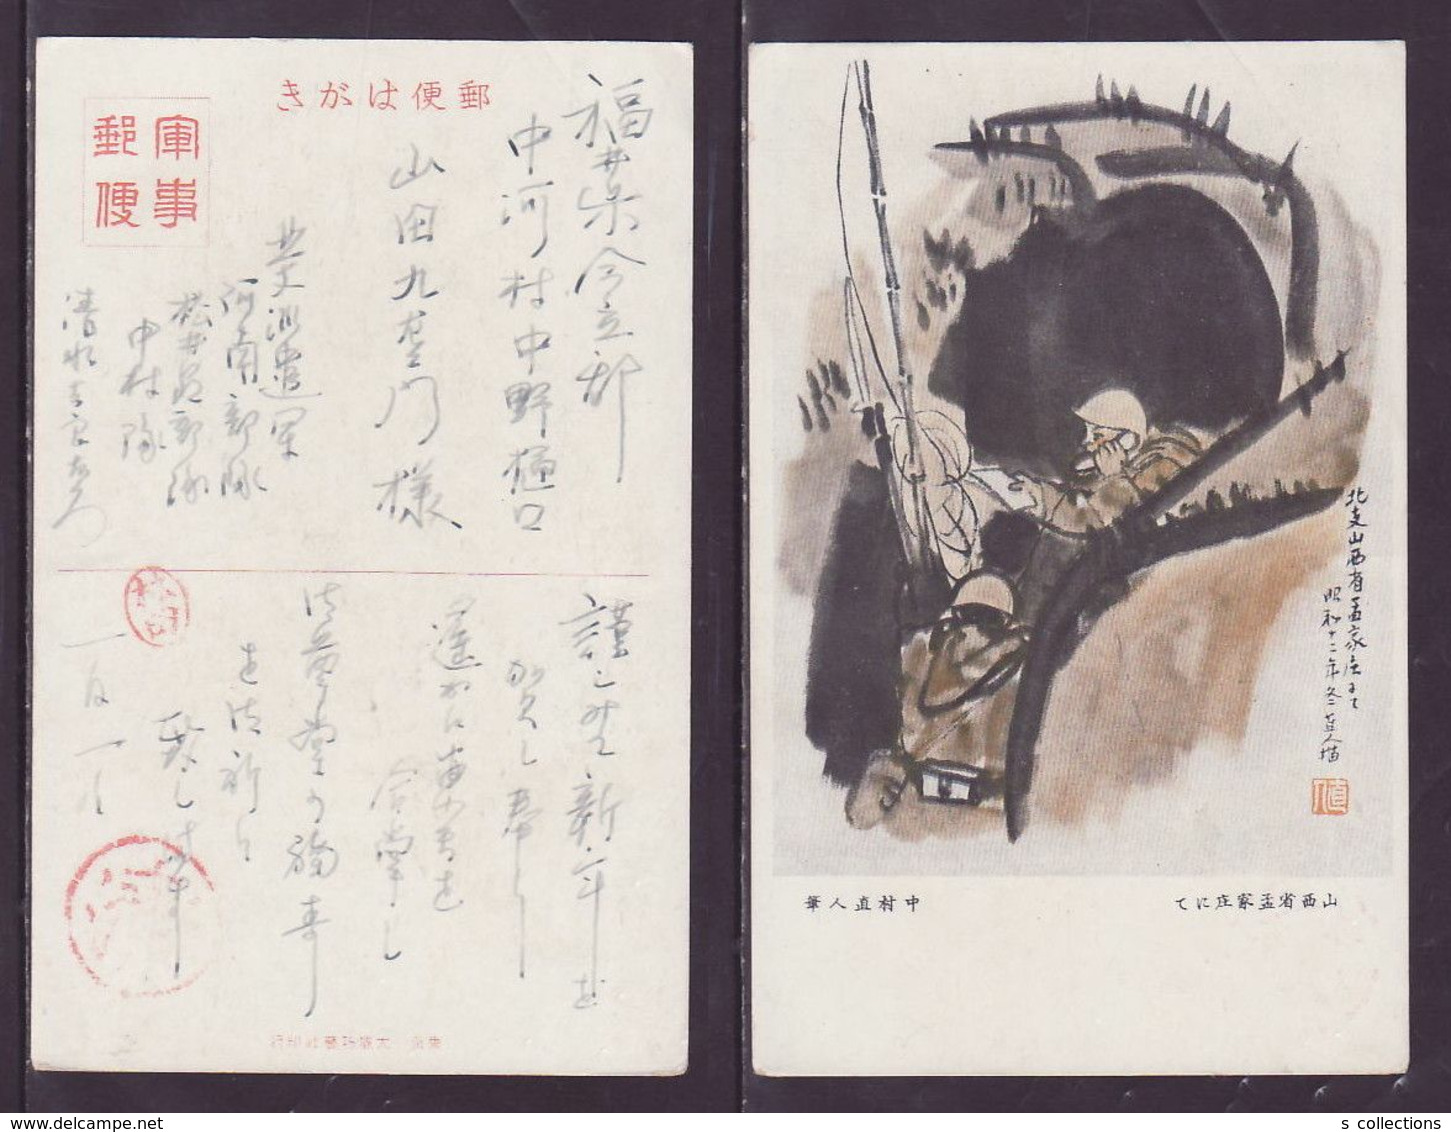 郵便はがき
軍事
郵便
福井県今立郡
中河村中野樋口
山田九左エ門様
北支派遣軍
河南部隊
松井名部隊
中村隊
清水
謹しみて新年を
賀し奉り
遥かに
合掌し
福寿
を御祈り
致し
一月一日
東京 大塚巧藝社印行
北支山西省孟家庄にて
昭和十二年冬 直人描
直人
山西省孟家庄にて
中村直人筆
s collections